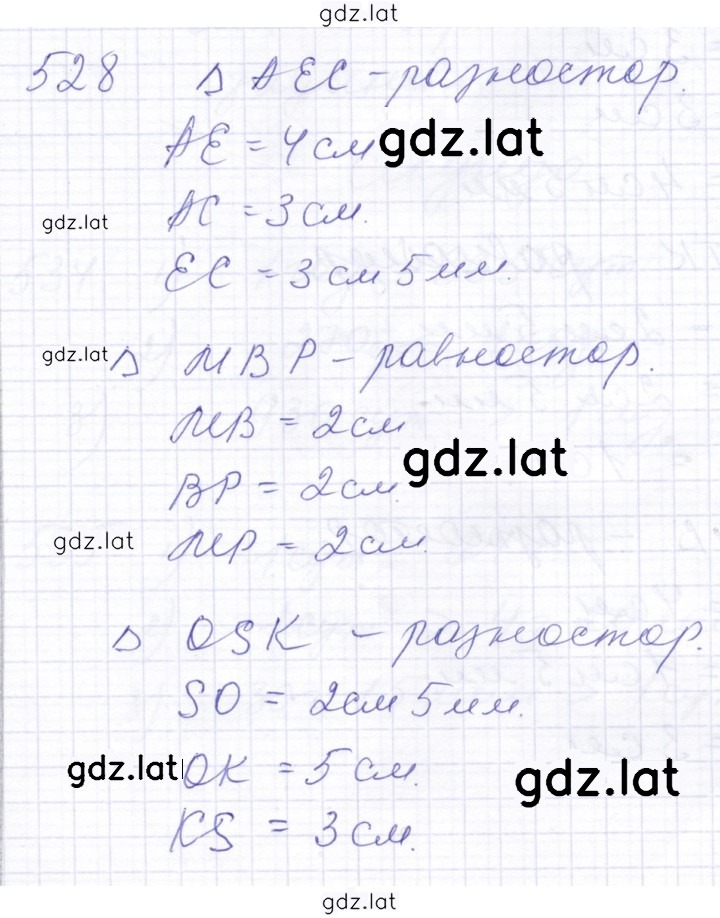 gdz.lat
528 Δ AEC - разностор.
AE = 4 см gdz.lat
AC = 3 см.
gdz.lat
EC = 3 см 5 мм.
gdz.lat Δ MBP - равностор.
MB = 2 см
gdz.lat
BP = 2 см.
gdz.lat MP = 2 см.
Δ OSK - разностор.
SO = 2 см 5 мм.
gdz.lat OK = 5 см. gdz.lat
KS = 3 см.
gdz.lat